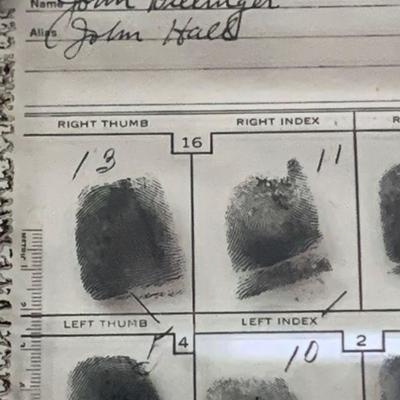 Name John Dillinger
Alias John Hall
RIGHT THUMB 16 RIGHT INDEX R
13 11
LEFT THUMB 4 LEFT INDEX 2
10